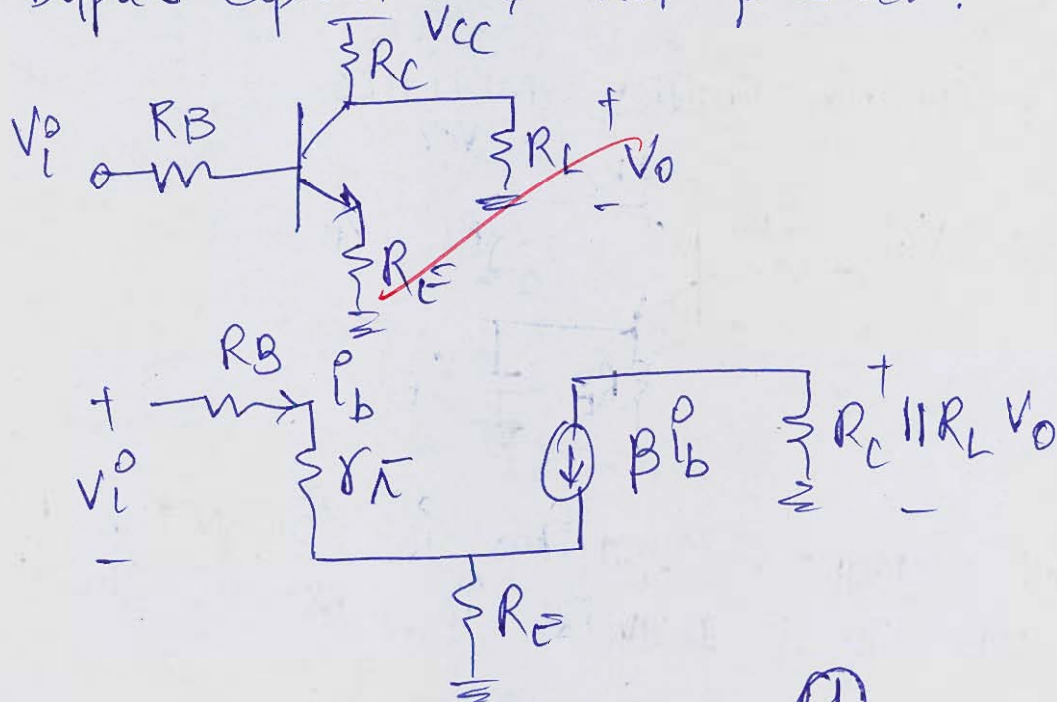 VCC
RC
Vi RB
RL + Vo -
RE
RB ib
+ Vi - rπ βib RC || RL + Vo -
RE
1